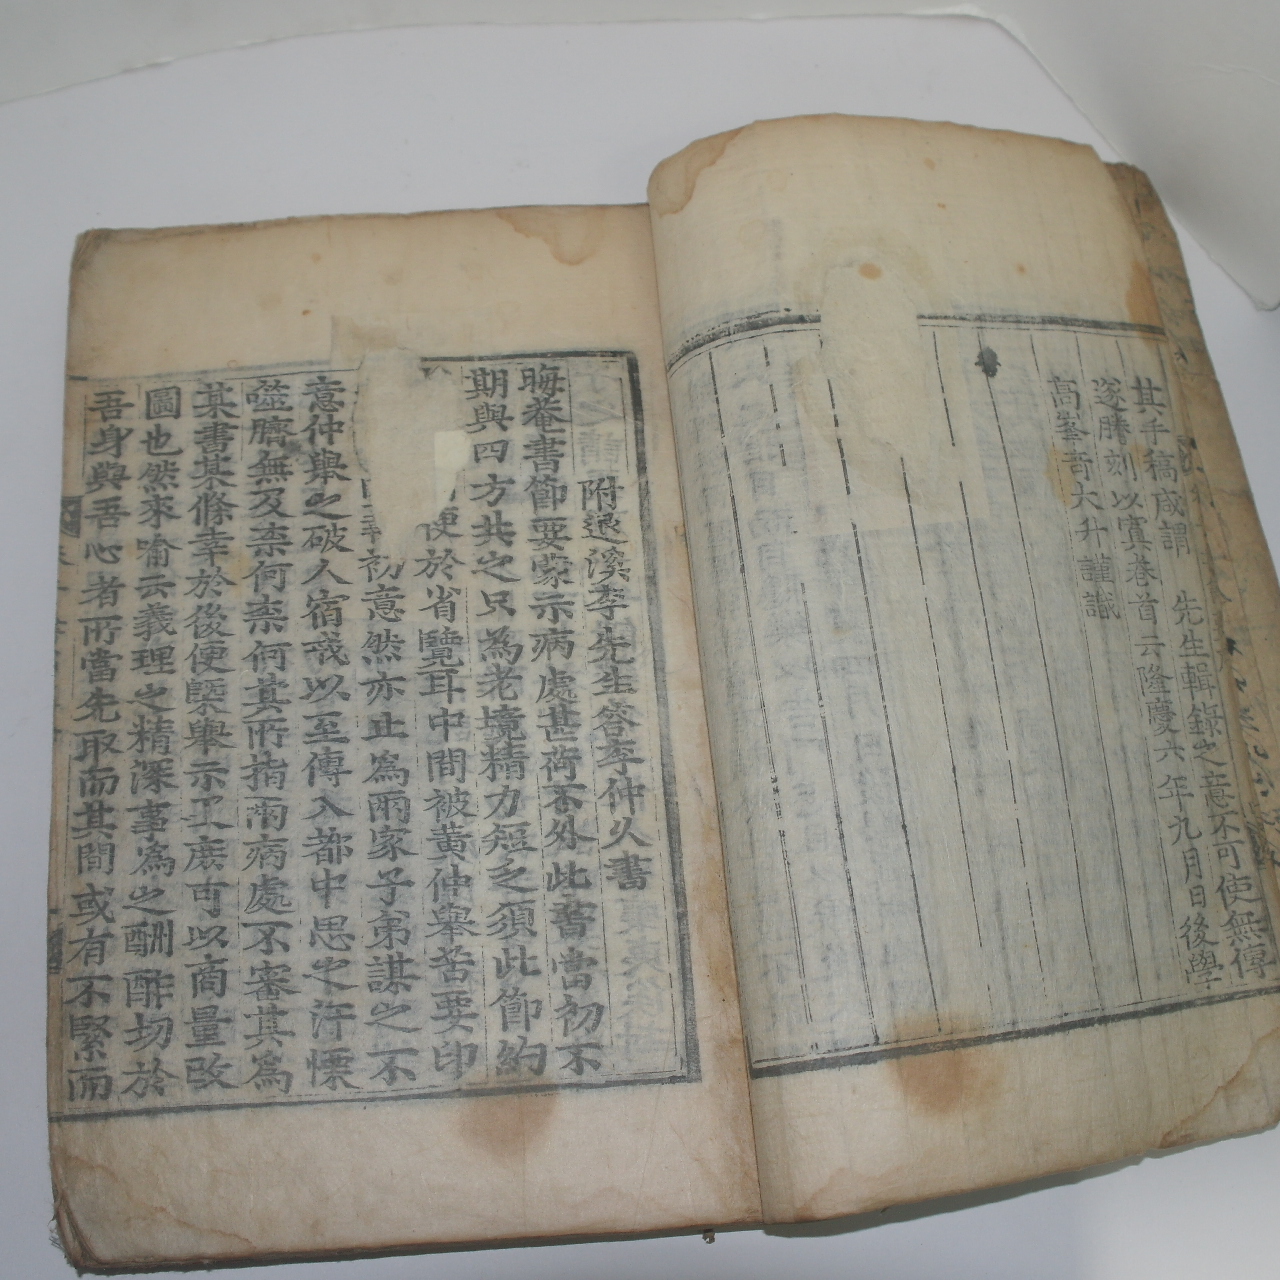 其手稿咸謂 先生輯錄之意不可使無傳
遂謄刻以寘卷首云隆慶六年九月日後學
高峯奇大升謹識
附退溪李先生答李仲久書
晦菴書節要蒙示病處甚荷不外此書當初不
期與四方共之只爲老境精力短乏須此節約
便於省覽耳中間被黃仲舉苦要印
初意然亦止爲兩家子弟謀之不
意仲舉之破人宿戒以至傳入都中思之汗慄
噬臍無及柰何柰何其所指兩病處不審其爲
某書某條幸於後便槩舉示又庶可以商量改
圖也然來喻云義理之精深事爲之酬酢切於
吾身與吾心者所當先取而其間或有不緊而